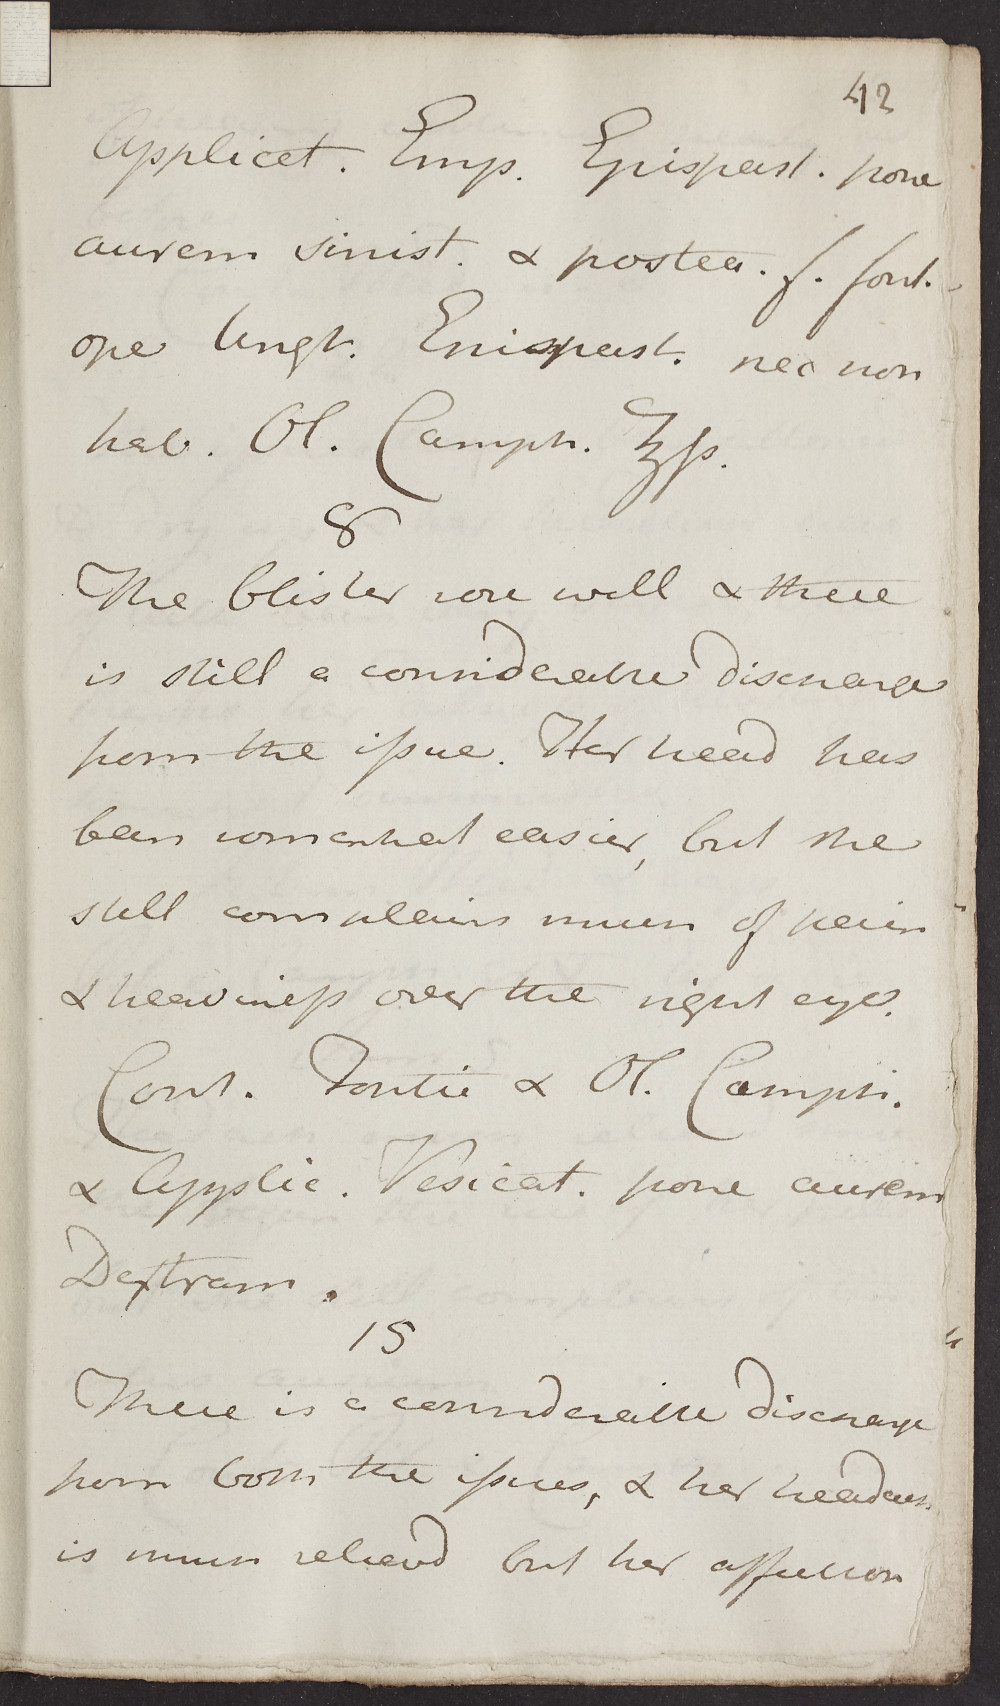 42
Applicet. Emp. Epispast. pone
aurem sinist. & postea. f. font.
ope Ungt. Epispast. nec non
hab. Ol. Camph. ℥ß.
8
The blister rose well & there
is still a considerable discharge
from the issue. Her head has
been somewhat easier, but she
still complains much of pain
& heaviness over the right eye.
Cont. Fontic & Ol. Camph.
& Applic. Vesicat. pone aurem
Dextram.
15
There is a considerable discharge
from both the issues, & her headach
is much relievd but her affection